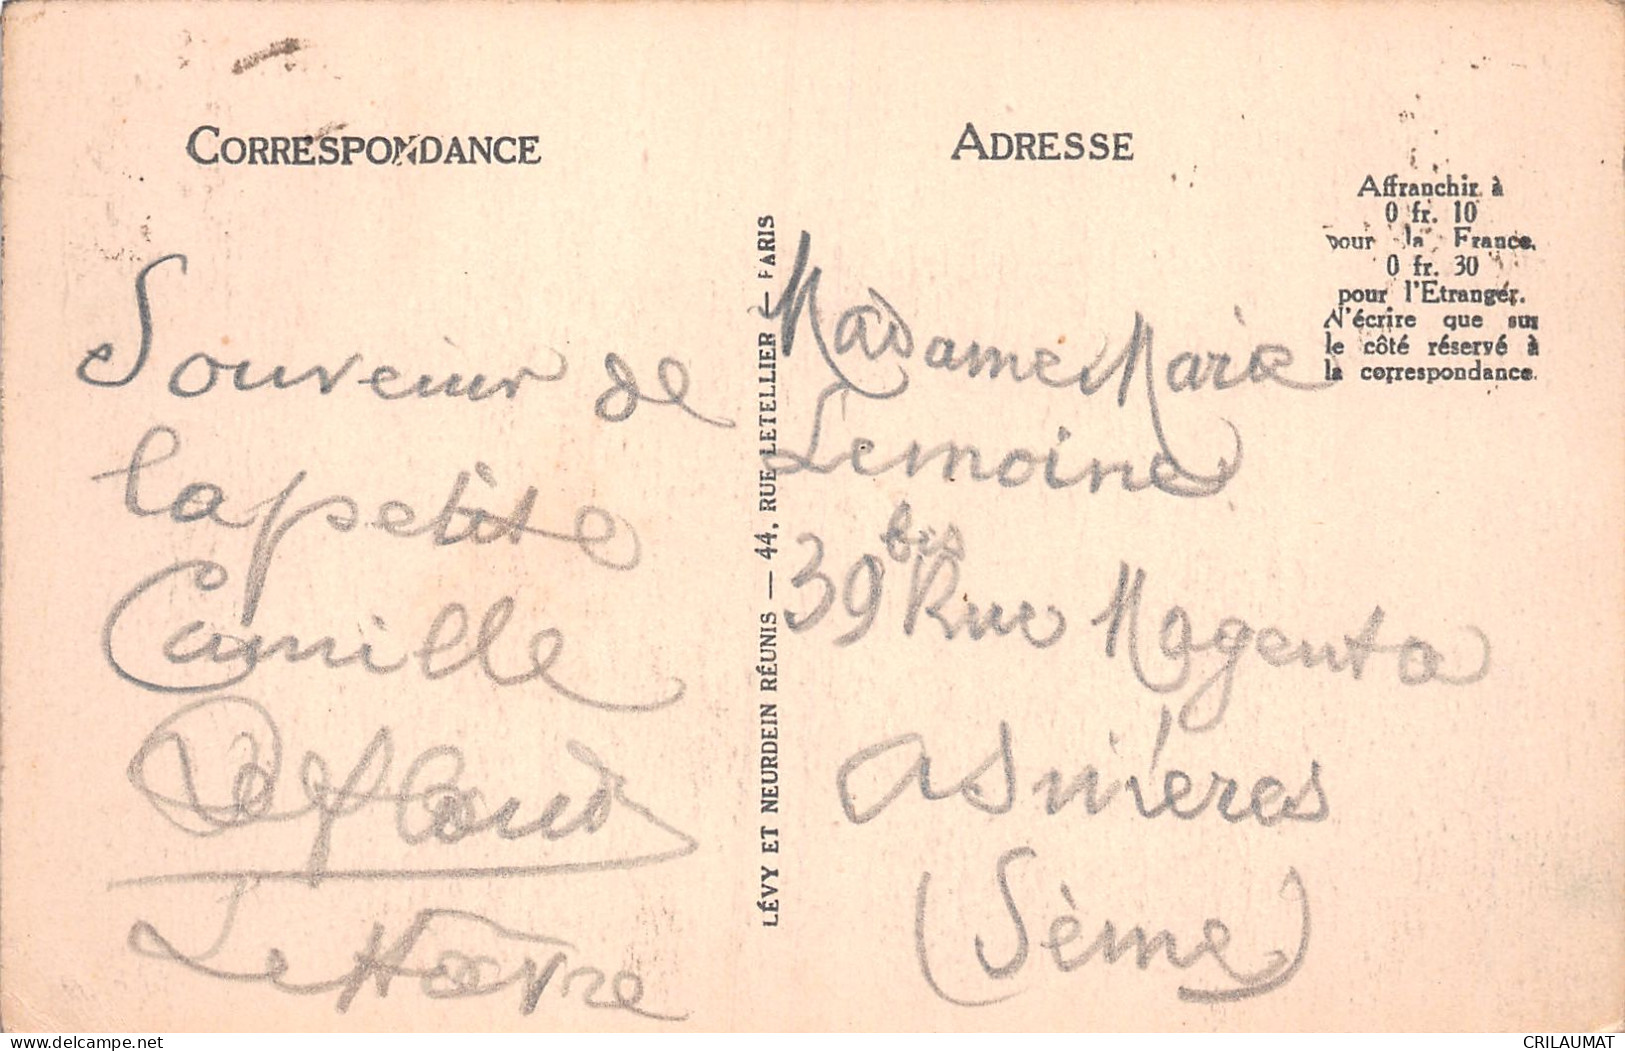 CORRESPONDANCE
Souvenir de
la petite
Camille
Le Havre
LÉVY ET NEURDEIN RÉUNIS — 44, RUE LETELLIER — PARIS
ADRESSE
Affranchir à
0 fr. 10
pour la France.
0 fr. 30
pour l'Etranger.
N'écrire que sur
le côté réservé à
la correspondance.
Madame Marie
Lemoine
39 bis Rue Magenta
Asnières
(Seine)
delcampe.net
CRILAUMAT